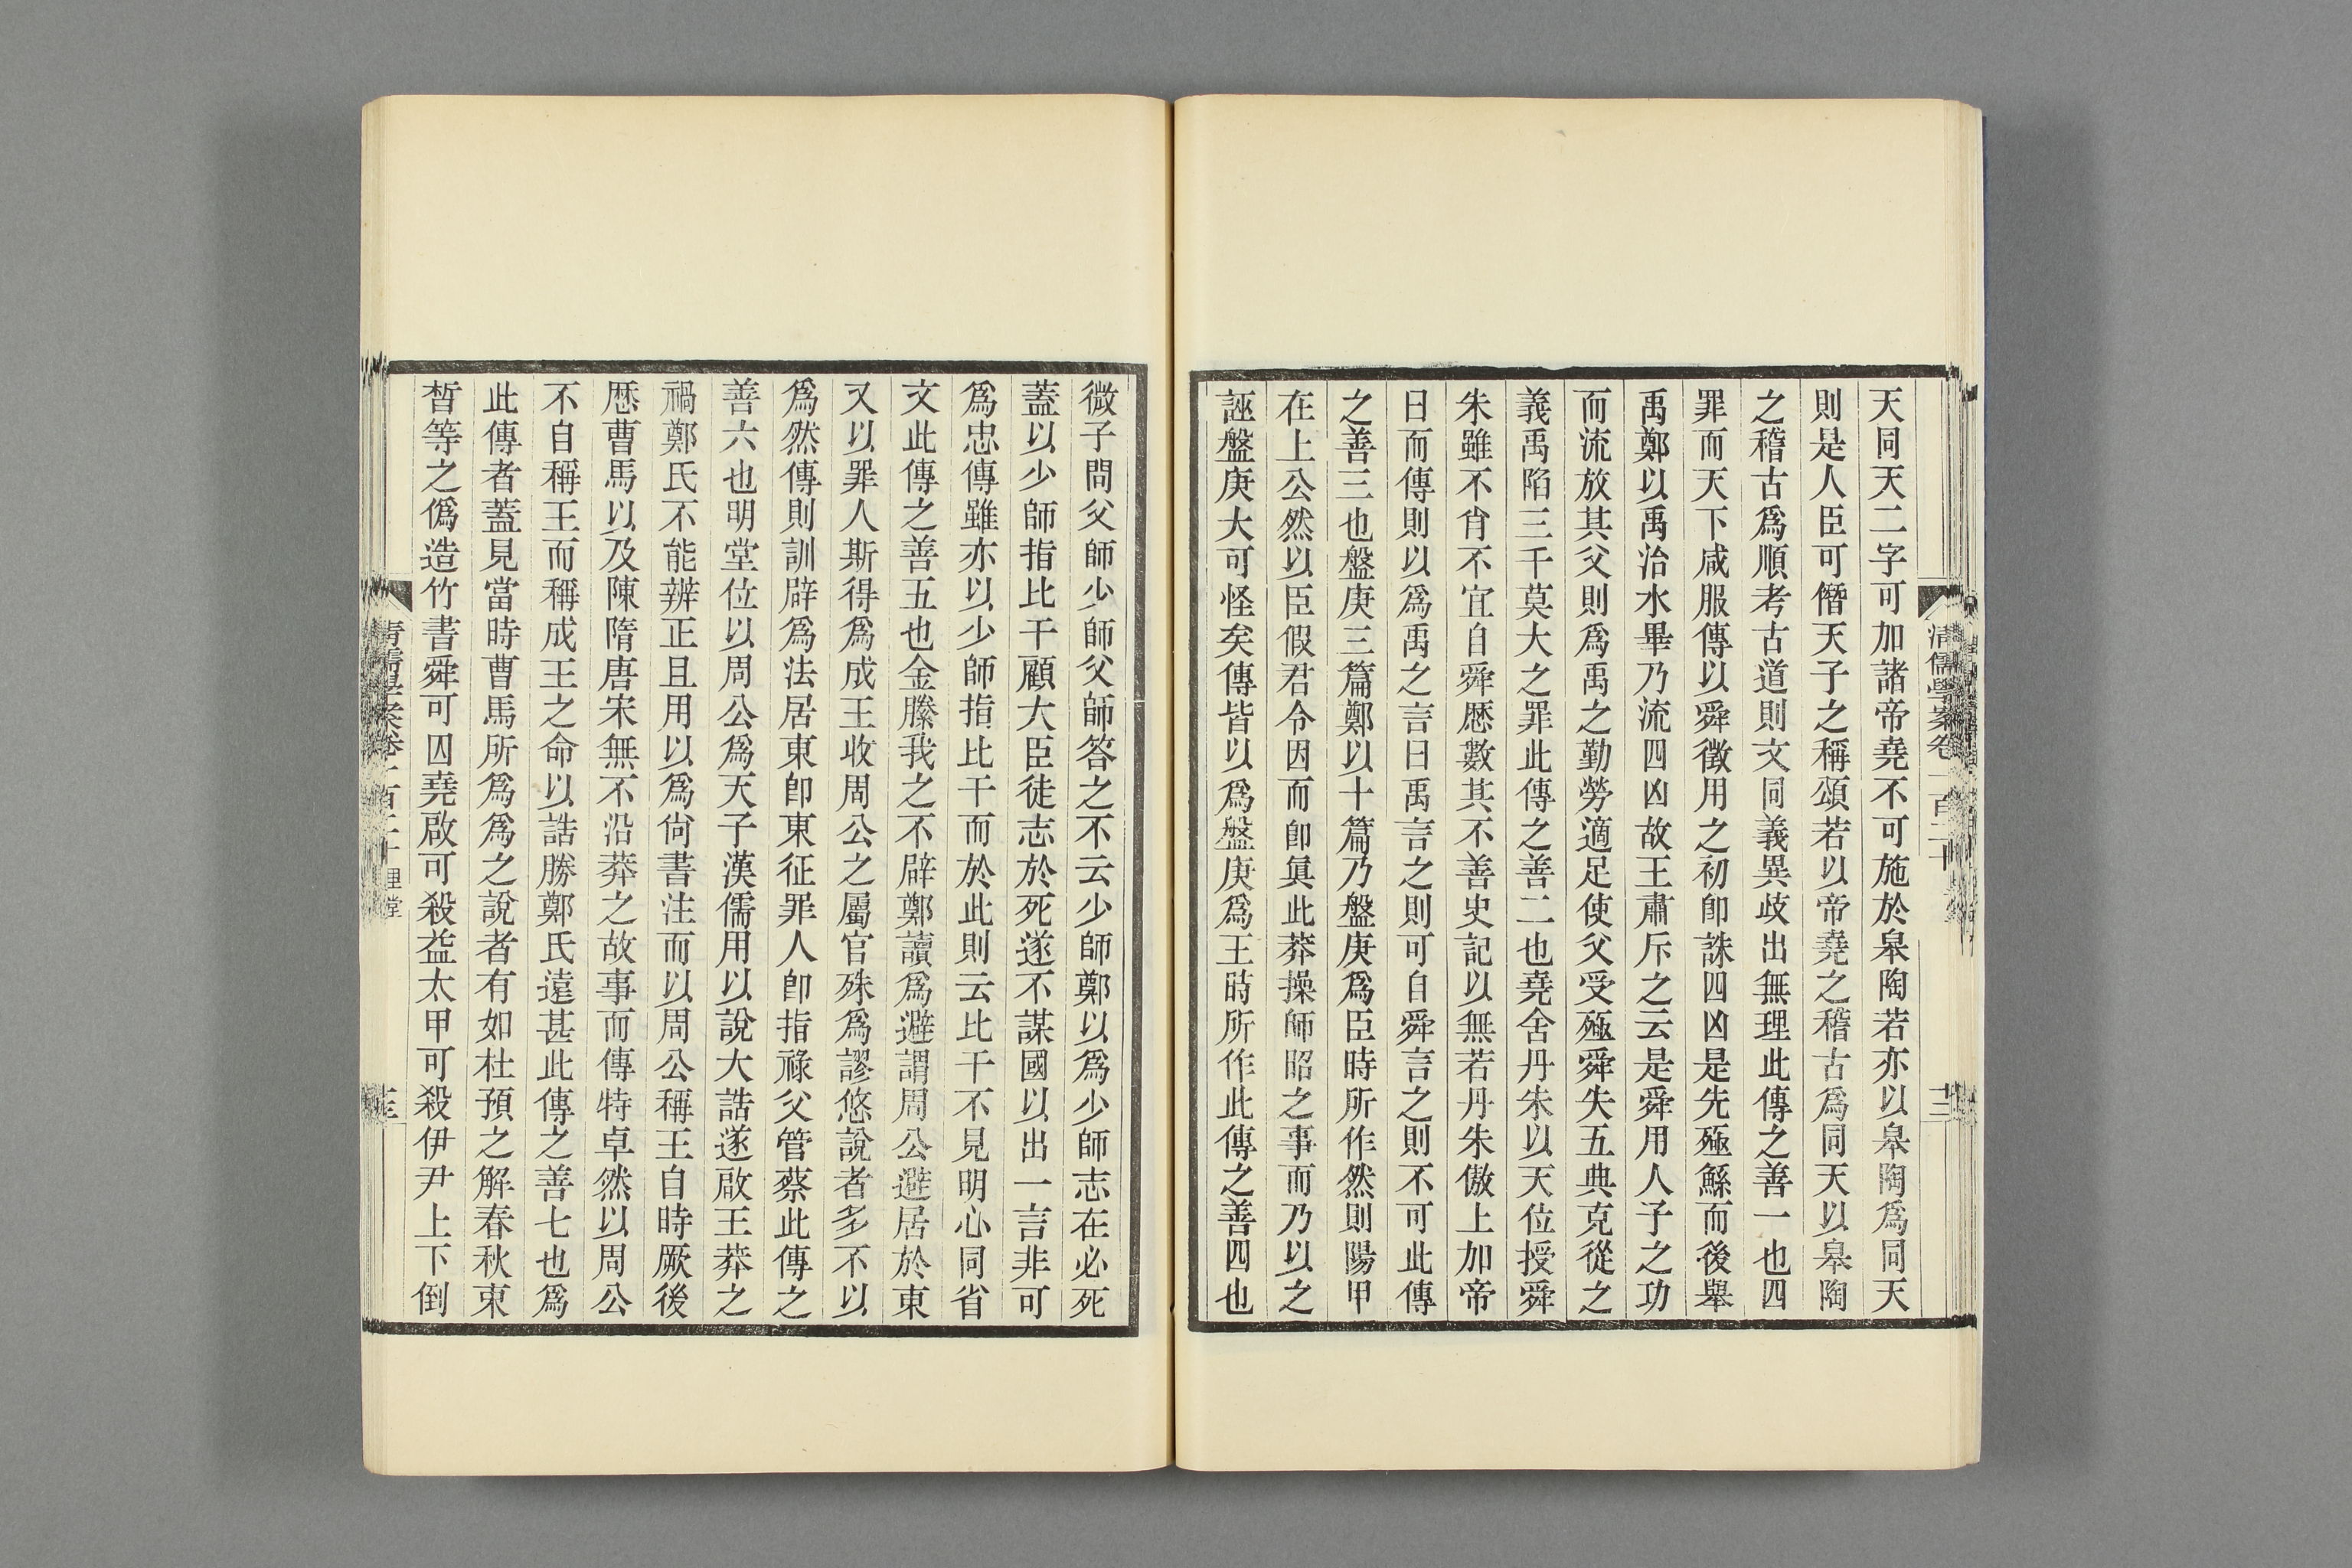 清儒學案卷一百二十
十二
天同天二字可加諸帝堯不可施於皋陶若亦以皋陶爲同天
則是人臣可僭天子之稱頌若以帝堯之稽古爲同天以皋陶
之稽古爲順考古道則文同義異歧出無理此傳之善一也四
罪而天下咸服傳以舜徵用之初卽誅四凶是先殛鯀而後舉
禹鄭以禹治水畢乃流四凶故王肅斥之云是舜用人子之功
而流放其父則爲禹之勤勞適足使父受殛舜失五典克從之
義禹陷三千莫大之罪此傳之善二也堯舍丹朱以天位授舜
朱雖不肖不宜自舜歷數其不善史記以無若丹朱傲上加帝
曰而傳則以爲禹之言曰禹言之則可自舜言之則不可此傳
之善三也盤庚三篇鄭以十篇乃盤庚爲臣時所作然則陽甲
在上公然以臣假君令因而卽眞此莽操師昭之事而乃以之
誣盤庚大可怪矣傳皆以爲盤庚爲王時所作此傳之善四也
微子問父師少師父師答之不云少師鄭以爲少師志在必死
蓋以少師指比干顧大臣徒志於死遂不謀國以出一言非可
爲忠傳雖亦以少師指比干而於此則云比干不見明心同省
文此傳之善五也金縢我之不辟鄭讀爲避謂周公避居於東
又以罪人斯得爲成王收周公之屬官殊爲謬悠說者多不以
爲然傳則訓辟爲法居東卽東征罪人卽指祿父管蔡此傳之
善六也明堂位以周公爲天子漢儒用以說大誥遂啟王莽之
禍鄭氏不能辨正且用以爲尙書注而以周公稱王自時厥後
歷曹馬以及陳隋唐宋無不沿莽之故事而傳特卓然以周公
不自稱王而稱成王之命以誥勝鄭氏遠甚此傳之善七也爲
此傳者蓋見當時曹馬所爲爲之說者有如杜預之解春秋束
皙等之僞造竹書舜可囚堯啟可殺益太甲可殺伊尹上下倒
清儒學案卷一百二十 里堂